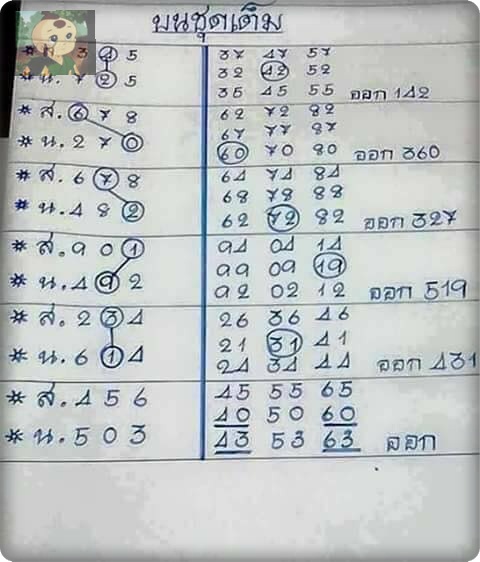 บนชุดเดิม
* ส. 3 4 5 37 47 57
32 42 52
* น. 7 2 5 35 45 55 ออก 142
* ส. 6 7 8 62 72 82
67 77 87
* น. 2 7 0 60 70 80 ออก 360
* ส. 6 7 8 64 74 84
68 78 88
* น. 4 8 2 62 72 82 ออก 327
* ส. 9 0 1 94 04 14
99 09 19
* น. 4 9 2 92 02 12 ออก 519
* ส. 2 3 4 26 36 46
21 31 41
* น. 6 1 4 24 34 44 ออก 431
* ส. 4 5 6 45 55 65
40 50 60
* น. 5 0 3 43 53 63 ออก